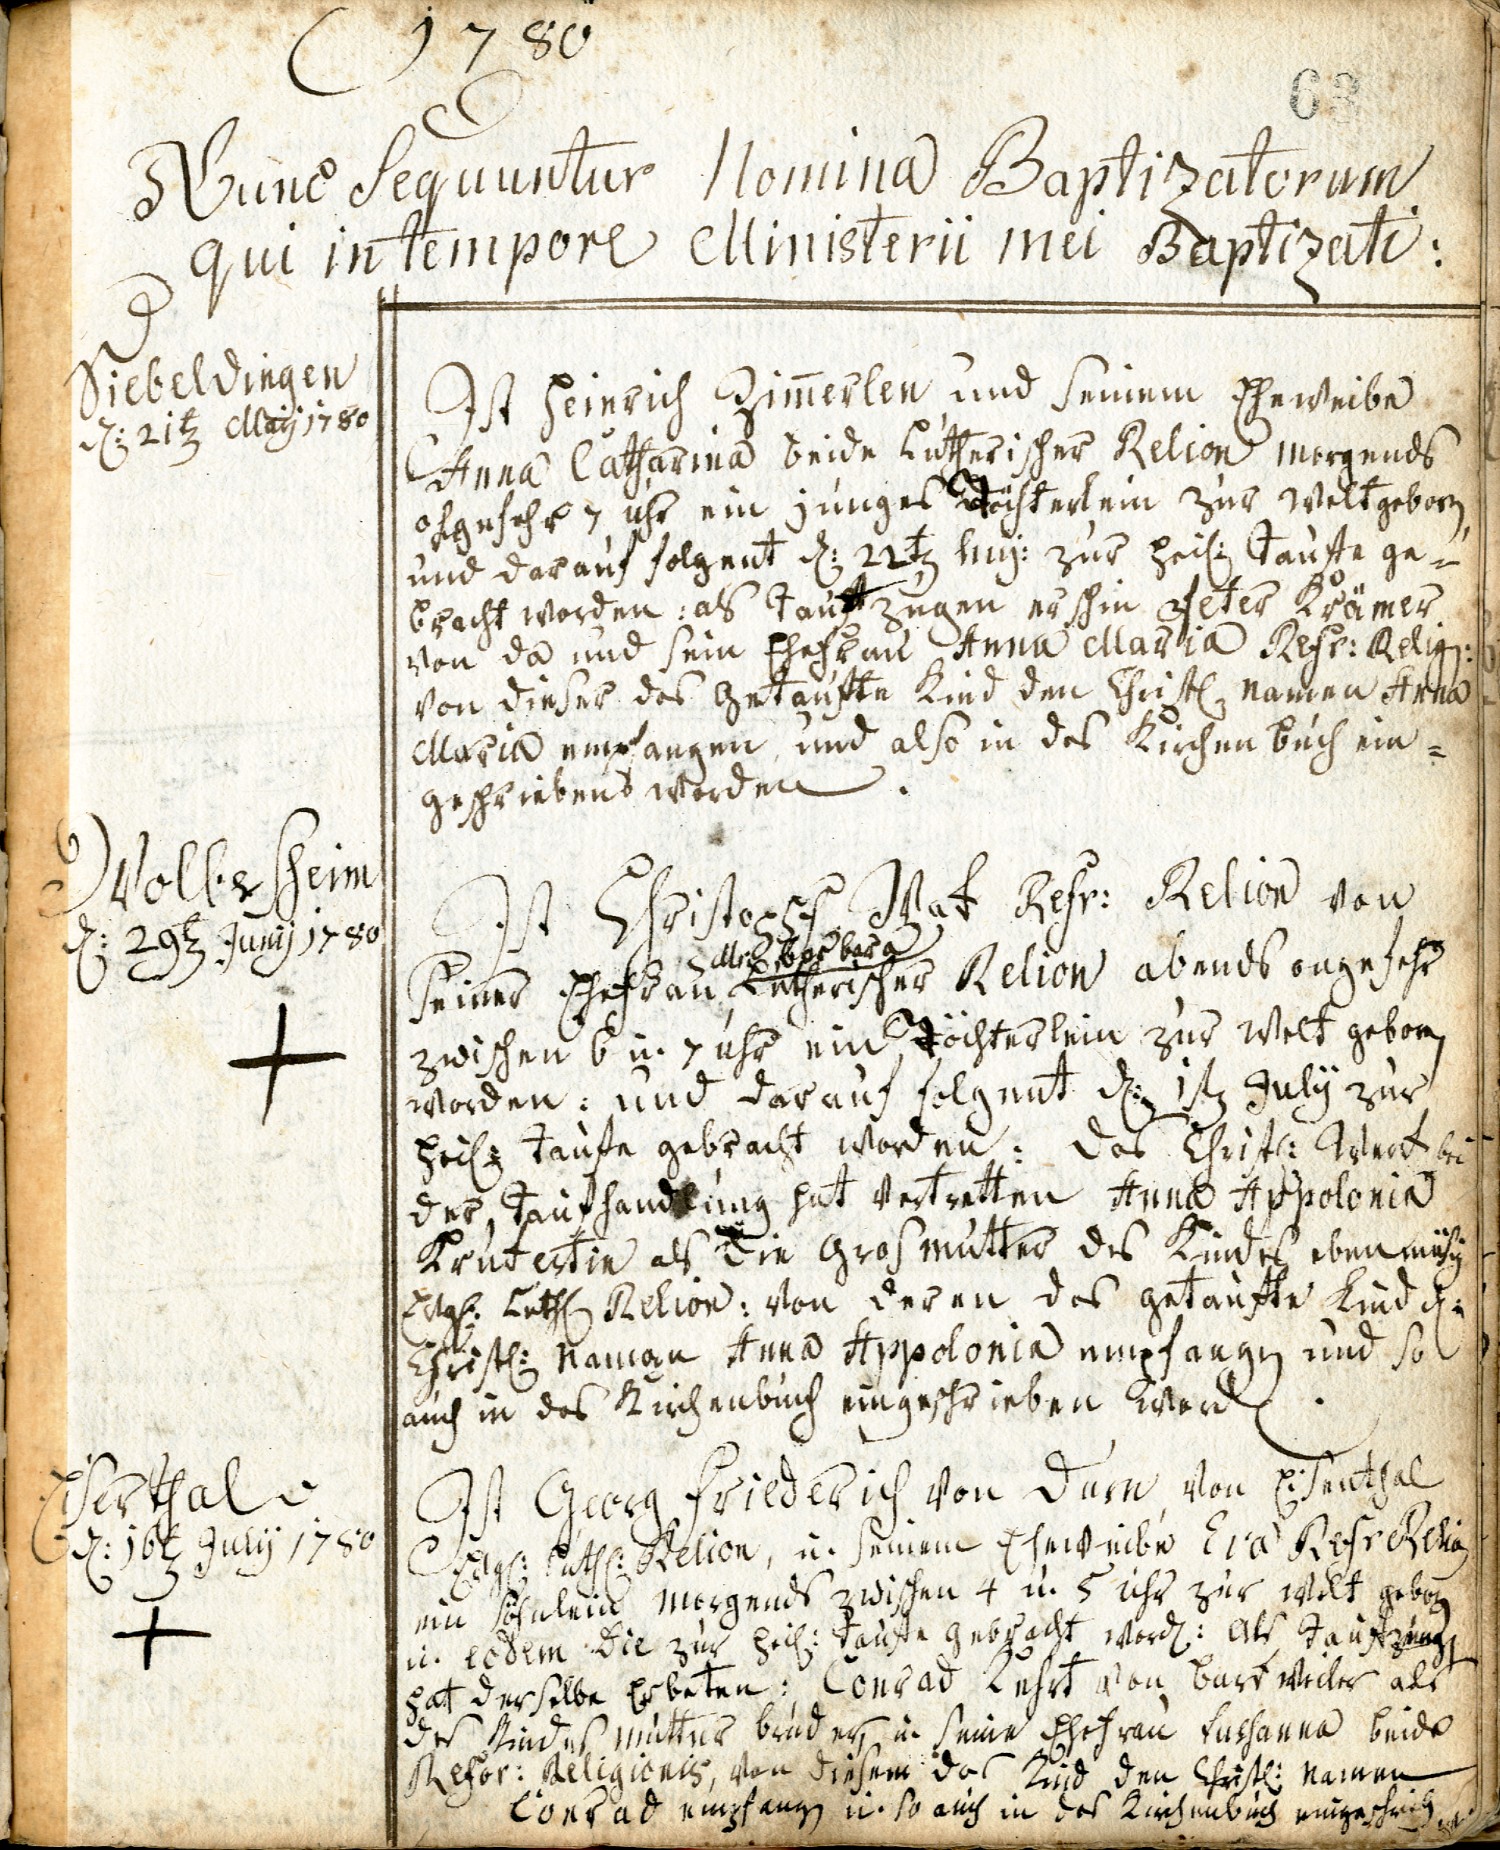 1780
63
Nunc Sequuntur Nomina Baptizatorum
qui in tempore Ministerii mei Baptizati:
Siebeldingen
d: 21t May 1780
Ist Heinrich Zimerlen und seinem Eheweibe
Anna Catharina beide Lutherischer Relion morgends
ohgefehr 7 uhr ein junges Töchterlein zur Welt geborn
und darauf folgent d: 22t huj: zur heil: Tauffe ge=
bracht worden: als Tauffzeugen erschin Peter Krämer
von da und sein Ehefrau Anna Maria Refr: Relig:
von dieser das getauffte Kind den Christl namen Anna
Maria empfangen und also in das Kirchen buch ein=
geschrieben worden.
Wolbersheim
d: 29t Juny 1780
Ist Christoph Wat Refr: Relion von
Mr: barbara
seiner Ehefrau Lutherischer Relion abends ongefehr
zwischen 6 u. 7 uhr ein Töchterlein zur Welt geborn
worden: und darauf folgent d: 1st July zur
heil: Tauffe gebracht worden: das Christl: Werk bei
der Taufhandlung hat Vertretten Anna Appolonia
als die Grosmutter des Kindes ebenmäsig
Evgl: Luthl Relion: von deren das getauffte Kind d:
Christl: Naman Anna Appolonia empfangen und so
auch in das Kirchenbuch eingeschrieben word.
Eiserthal
d: 16t July 1780
Ist Georg Friederich von Dürn von Eisenthal
Evgl: Luthl: Relion, u. seinem Eheweibe Eva Refr Relion
ein söhnlein morgends zwischen 4 u. 5 uhr zur welt geborn
u. eodem die zur heil: Tauffe gebracht word: Als Taufzeugen
hat derselbe Erbeten: Conrad Kuhrt von als
des Kindes mutter bruder u. seine Ehefrau Susanna beide
Refor: Religionis, von diesem das Kind den Christl: namen
Conrad empfangn u. so auch in das Kirchenbuch eingeschrieb